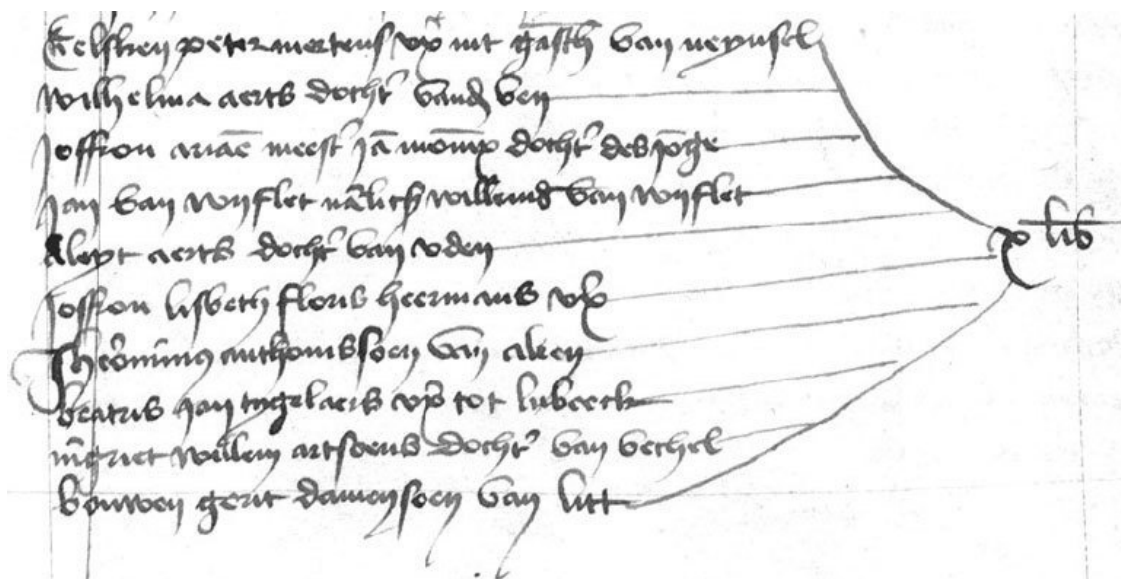 Telsken peter mertens uxor int gasth van neynsel
wilhelma aerts docht vand ven
Joffrou ariaē meest Jā momp docht des jōge
Jan van wyflet nalich willem van wyflet
Aleyt aerts docht van uden
Joffrou lisbeth floris heermans ux
Jheronimus anthonissoen van aken
beatris Jan tygelaers ux tot lubeeck
mgriet willem artsoens docht van vechel
bouwen gerit damensoen van litt
x lib